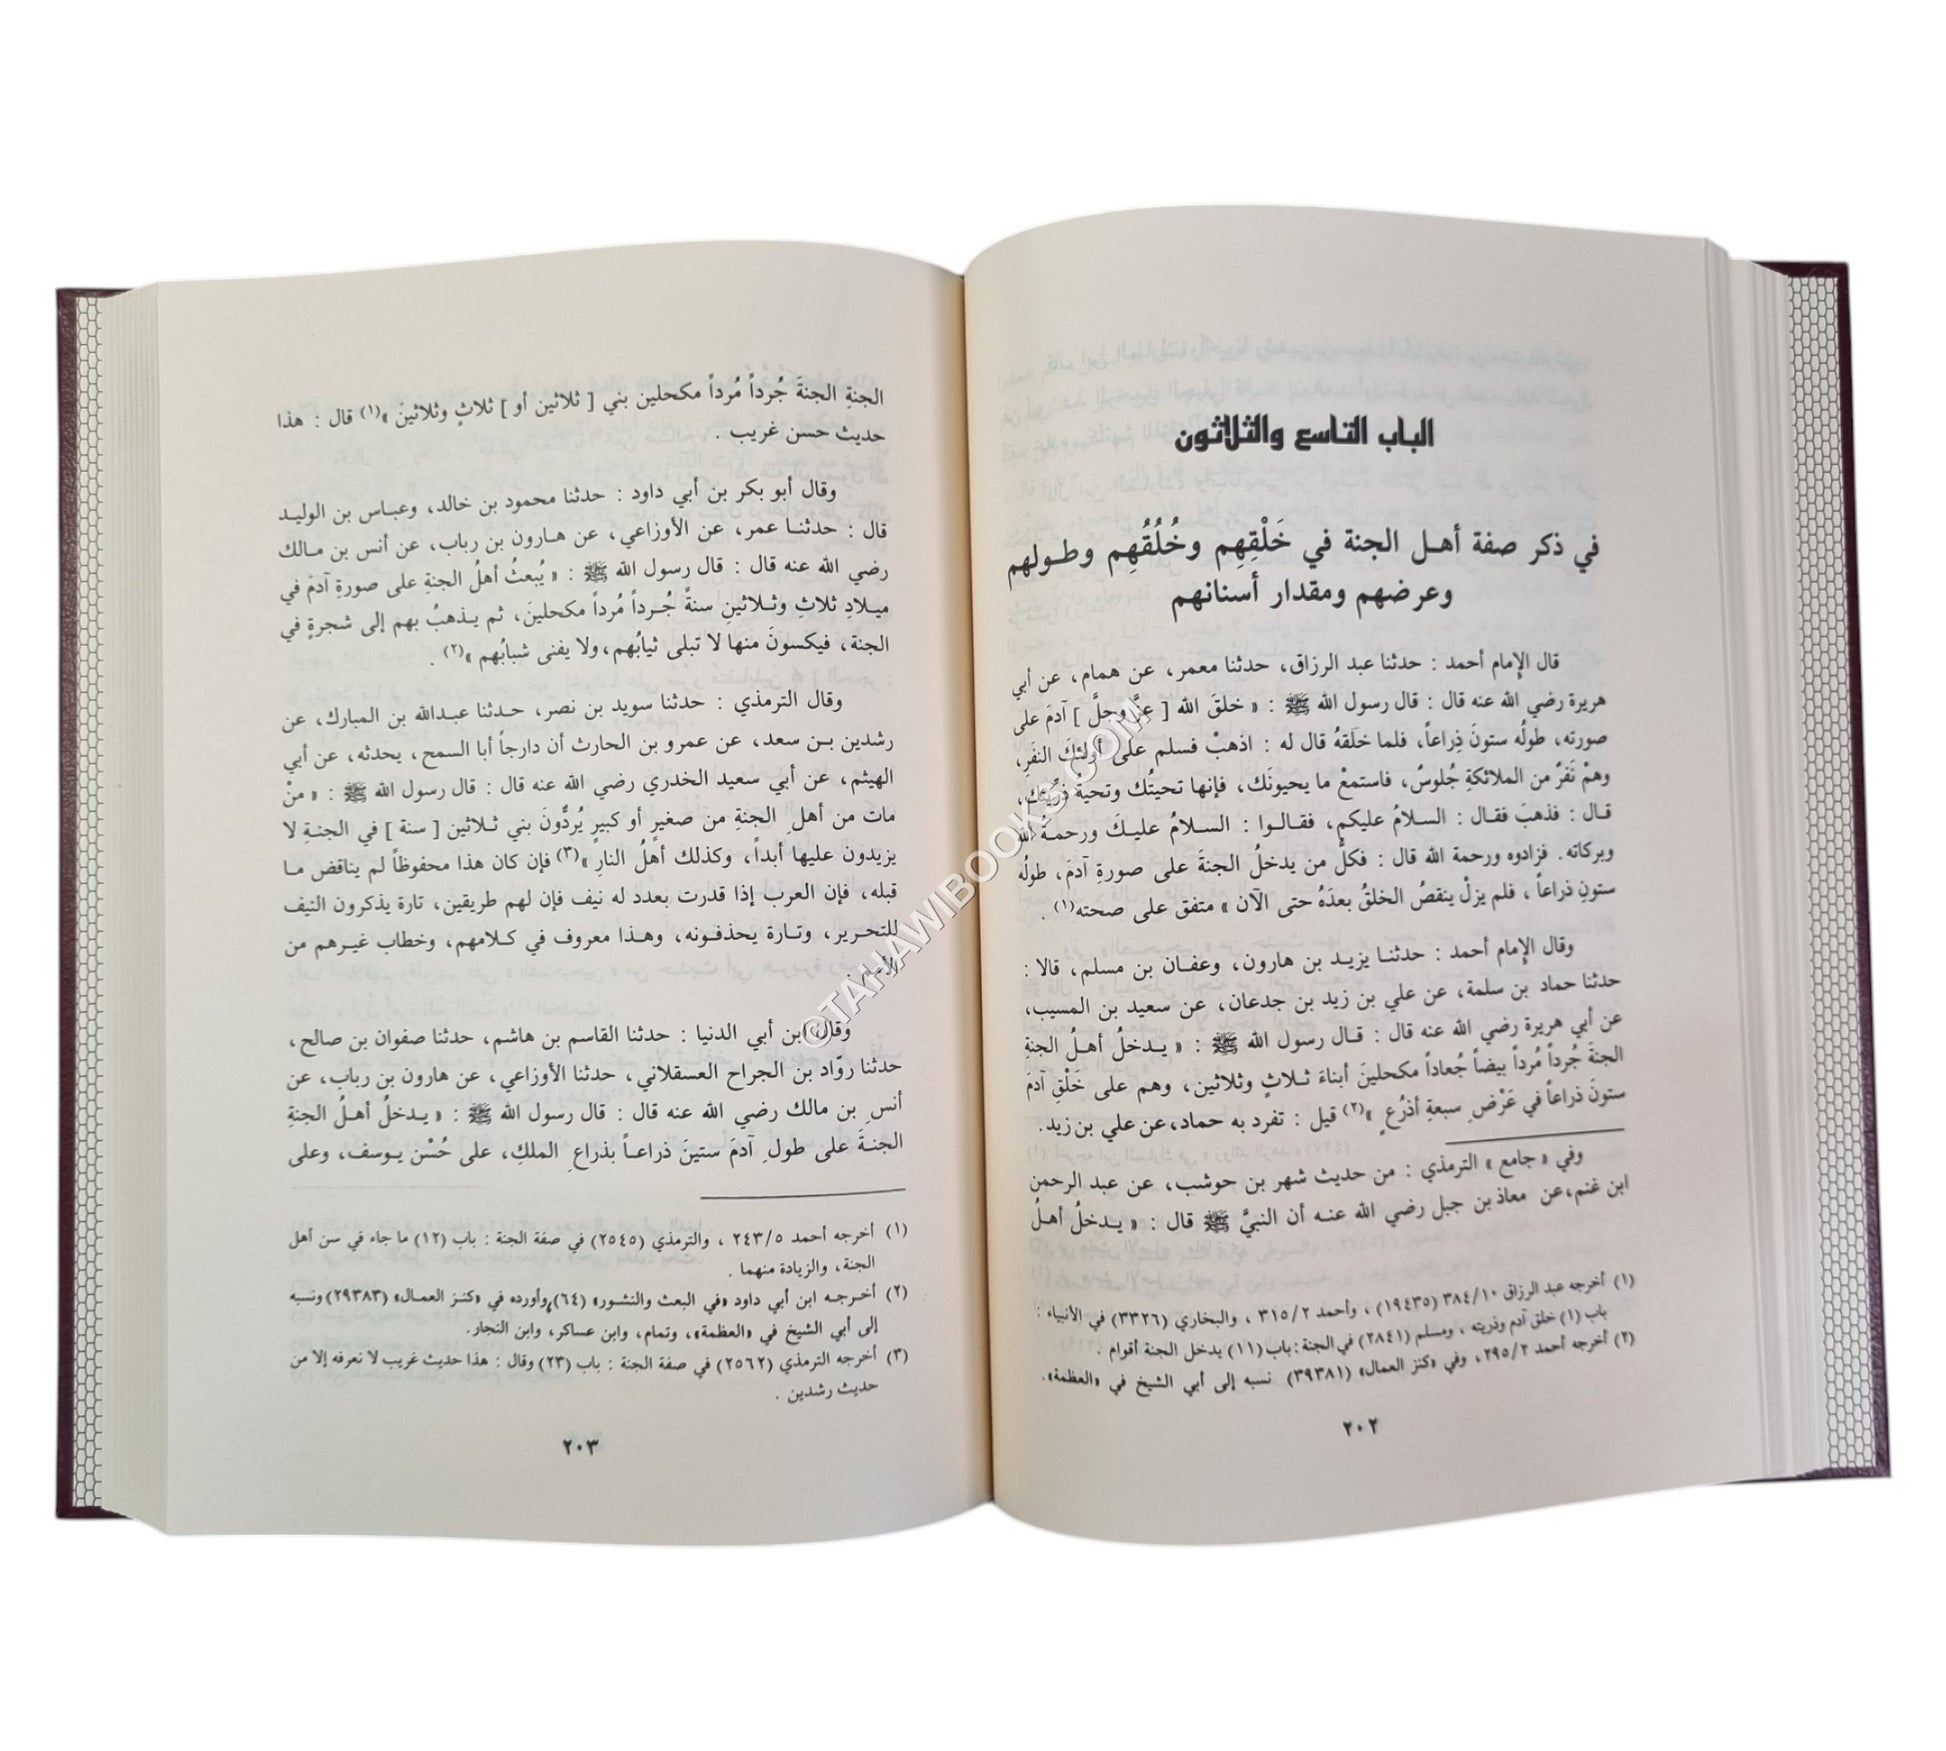 الباب التاسع والثلاثون
في ذكر صفة أهل الجنة في خَلْقِهِم وخُلُقُهِم وطولهم
وعرضهم ومقدار أسنانهم
قال الإمام أحمد : حدثنا عبد الرزاق، حدثنا معمر، عن همام، عن أبي
هريرة رضي الله عنه قال : قال رسول الله ﷺ : « خلقَ الله [ عزَّ وجلَّ ] آدمَ على
صورته، طولُه ستونَ ذِراعاً، فلما خلَقهُ قال له : اذهبْ فسلم على أولئكَ النفَرِ،
وهمْ نَفَرٌ من الملائكةِ جُلوسٌ، فاستمعْ ما يحيونَك، فإنها تحيتُك وتحية ذرِّيتك،
قال : فذهبَ فقال : السلامُ عليكم، فقالوا : السلامُ عليكَ ورحمةُ الله
وبركاته. فزادوه ورحمة الله قال : فكلُّ من يدخلُ الجنةَ على صورةِ آدمَ، طولُه
ستونِ ذراعاً ، فلم يزلْ ينقصُ الخلقُ بعدَهُ حتى الآن » متفق على صحته(١) .
وقال الإمام أحمد : حدثنا يزيد بن هارون، وعفان بن مسلم، قالا :
حدثنا حماد بن سلمة، عن علي بن زيد بن جدعان، عن سعيد بن المسيب،
عن أبي هريرة رضي الله عنه قال : قال رسول الله ﷺ : « يدخلُ أهلُ الجنةِ
الجنةَ جُرداً مُرداً بيضاً جُعاداً مكحلينَ أبناءَ ثلاثٍ وثلاثين، وهم على خَلْقِ آدمَ
ستونَ ذراعاً في عَرْضِ سبعةِ أذرُعٍ »(٢) قيل : تفرد به حماد، عن علي بن زيد.
وفي « جامع » الترمذي : من حديث شهر بن حوشب، عن عبد الرحمن
ابن غنم، عن معاذ بن جبل رضي الله عنه أن النبيَّ ﷺ قال : « يدخلُ أهلُ
(١) أخرجه عبد الرزاق ٣٨٤/١٠ (١٩٤٣٥) ، وأحمد ٣١٥/٢ ، والبخاري (٣٣٢٦) في الأنبياء :
باب (١) خلق آدم وذريته ، ومسلم (٢٨٤١) في الجنة : باب (١١) يدخل الجنة أقوام .
(٢) أخرجه أحمد ٢٩٥/٢ ، وفي «كنز العمال» (٣٩٣٨١) نسبه إلى أبي الشيخ في «العظمة».
٢٠٢
الجنةِ الجنةَ جُرداً مُرداً مكحلين بني [ ثلاثين أو ] ثلاثٍ وثلاثينَ »(١) قال : هذا
حديث حسن غريب .
وقال أبو بكر بن أبي داود : حدثنا محمود بن خالد، وعباس بن الوليد
قال : حدثنا عمر، عن الأوزاعي، عن هارون بن رباب، عن أنس بن مالك
رضي الله عنه قال : قال رسول الله ﷺ : « يُبعثُ أهلُ الجنةِ على صورةِ آدمَ في
ميلادِ ثلاثِ وثلاثينِ سنةً جُرداً مُرداً مكحلينَ، ثم يذهبُ بهم إلى شجرةٍ في
الجنة، فيكسونَ منها لا تبلى ثيابُهم، ولا يفنى شبابُهم »(٢) .
وقال الترمذي : حدثنا سويد بن نصر، حدثنا عبدالله بن المبارك، عن
رشدين بن سعد، عن عمرو بن الحارث أن دارجاً أبا السمح، يحدثه، عن أبي
الهيثم، عن أبي سعيد الخدري رضي الله عنه قال : قال رسول الله ﷺ : « منْ
مات من أهلِ الجنةِ من صغيرٍ أو كبيرٍ يُردُّونَ بني ثلاثين [ سنة ] في الجنةِ لا
يزيدونَ عليها أبداً، وكذلك أهلُ النارِ »(٣) فإن كان هذا محفوظاً لم يناقض ما
قبله، فإن العرب إذا قدرت بعدد له نيف فإن لهم طريقين، تارة يذكرون النيف
للتحرير، وتارة يحذفونه، وهذا معروف في كلامهم، وخطاب غيرهم من
الأمم .
وقال ابن أبي الدنيا : حدثنا القاسم بن هاشم، حدثنا صفوان بن صالح،
حدثنا روّاد بن الجراح العسقلاني، حدثنا الأوزاعي، عن هارون بن رباب، عن
أنسِ بن مالك رضي الله عنه قال : قال رسول الله ﷺ : « يدخلُ أهلُ الجنةِ
الجنةَ على طولِ آدمَ ستينَ ذراعاً بذراعِ الملكِ، على حُسْنِ يوسف، وعلى
(١) أخرجه أحمد ٢٤٣/٥ ، والترمذي (٢٥٤٥) في صفة الجنة : باب (١٢) ما جاء في سن أهل
الجنة، والزيادة منهما .
(٢) أخرجه ابن أبي داود «في البعث والنشور» (٦٤)، وأورده في «كنز العمال» (٢٩٣٨٣) ونسبه
إلى أبي الشيخ في «العظمة»، وتمام، وابن عساكر، وابن النجار.
(٣) أخرجه الترمذي (٢٥٦٢) في صفة الجنة : باب (٢٣) وقال : هذا حديث غريب لا نعرفه إلا من
حديث رشدين .
٢٠٣
©TAHAWIBOOKS.COM